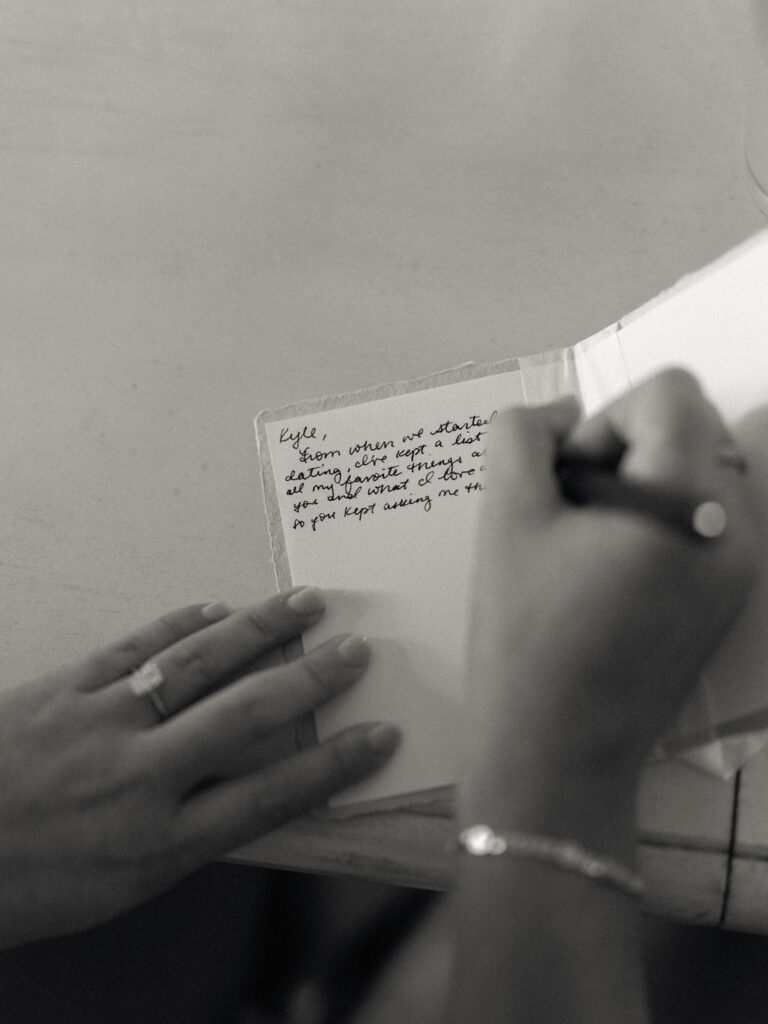 Kyle,
From when we started
dating, I've kept a list
all my favorite things
you and what I love
so you kept asking me